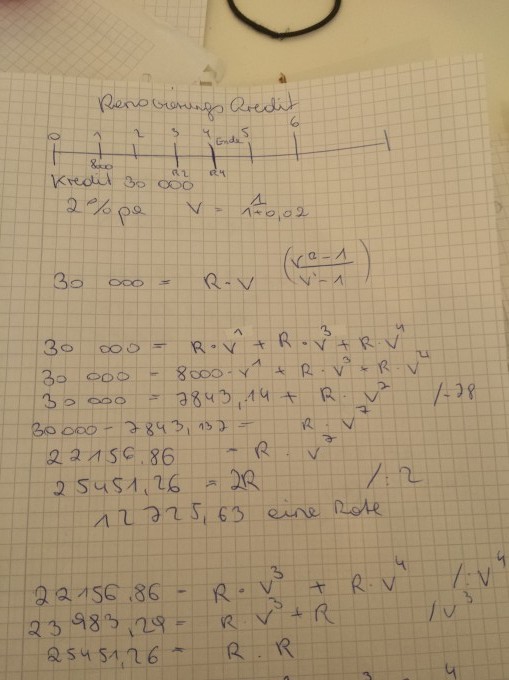 Renovierungs Credit
0 1 2 3 4 Ende 5 6
8000 R2 R4
Kredit 30 000
2 % pa V = 1/1+0,02
30 000 = R - V (Vⁿ - 1 / V - 1)
30 000 = R · V¹ + R · V³ + R · V⁴
30 000 = 8000 · V¹ + R · V³ + R · V⁴
30 000 = 7843,14 + R · V⁷ /-78
30000 - 7843,137 = R · V⁷
22156,86 = R · V⁷
25451,26 = 2R /: 2
12725,63 eine Rate
22156,86 = R · V³ + R · V⁴ /: V⁴
23983,29 = R · V³ + R / V³
25451,26 = R . R